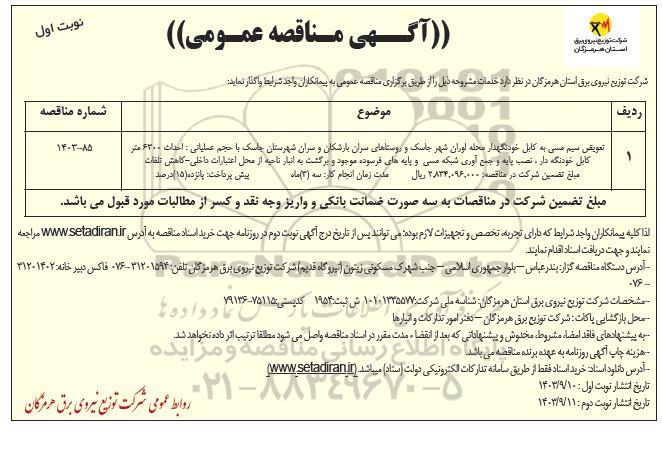 نوبت اول
((آگهی مناقصه عمومی))
شرکت توزیع نیروی برق
استان هرمزگان
شرکت توزیع نیروی برق استان هرمزگان در نظر دارد خدمات مشروحه ذیل را از طریق برگزاری مناقصه عمومی به پیمانکاران واجد شرایط واگذار نماید:
ردیف موضوع شماره مناقصه
۱ تعویض سیم مسی به کابل خودنگهدار محله لوران شهر جاسک و روستاهای سران بارشکان و سران شهرستان جاسک با حجم عملیاتی : احداث ۶۳۰۰ متر ۱۴۰۳-۸۵
کابل خودنگه دار ، نصب پایه و جمع آوری شبکه مسی و پایه های فرسوده موجود و برگشت به انبار ناحیه از محل اعتبارات داخلی-کاهش تلفات
مبلغ تضمین شرکت در مناقصه: ۲.۸۳۴.۰۹۶.۰۰۰ ریال مدت زمان انجام کار: سه (۳)ماه پیش پرداخت: پانزده(۱۵)درصد
مبلغ تضمین شرکت در مناقصات به سه صورت ضمانت بانکی و واریز وجه نقد و کسر از مطالبات مورد قبول می باشد.
لذا کلیه پیمانکاران واجد شرایط که دارای تجربه تخصص و تجهیزات لازم بوده؛ می توانند پس از تاریخ درج آگهی نوبت دوم در روزنامه جهت خرید اسناد مناقصه به آدرس www.setadiran.ir مراجعه
نمایند و جهت دریافت اسناد اقدام نمایند.
-آدرس دستگاه مناقصه گزار: بندرعباس – بلوار جمهوری اسلامی – جنب شهرک مسکونی زیتون (نیروگاه قدیم) شرکت توزیع نیروی برق هرمزگان تلفن: ۳۱۲۰۱۵۹۴-۰۷۶ فاکس دبیرخانه: ۳۱۲۰۱۴۰۲
-۰۷۶
-مشخصات شرکت توزیع نیروی برق استان هرمزگان: شناسه ملی شرکت: ۱۰۱۰۱۳۳۵۵۷۷ ش ثبت: ۱۹۵۴ کدپستی: ۷۵۱۱۵-۷۹۱۳۶
-محل بازگشایی پاکات : شرکت توزیع برق هرمزگان – دفتر امور تدارکات و انبارها
-به پیشنهادهای فاقد امضاء، مشروط، مخدوش و پیشنهاداتی که بعد از انقضاء مدت مقرر در اسناد مناقصه واصل می شود مطلقا ترتیب اثر داده نخواهد شد.
-هزینه چاپ آگهی روزنامه به عهده برنده مناقصه می باشد.
-آدرس دانلود اسناد: خرید اسناد فقط از طریق سامانه تدارکات الکترونیکی دولت (ستاد) میباشد. (www.setadiran.ir)
تاریخ انتشار نوبت اول : ۱۴۰۳/۹/۱۰
تاریخ انتشار نوبت دوم : ۱۴۰۳/۹/۱۱
روابط عمومی شرکت توزیع نیروی برق هرمزگان
۰۲۱-۸۸۳۴۹۶۷۰-۵